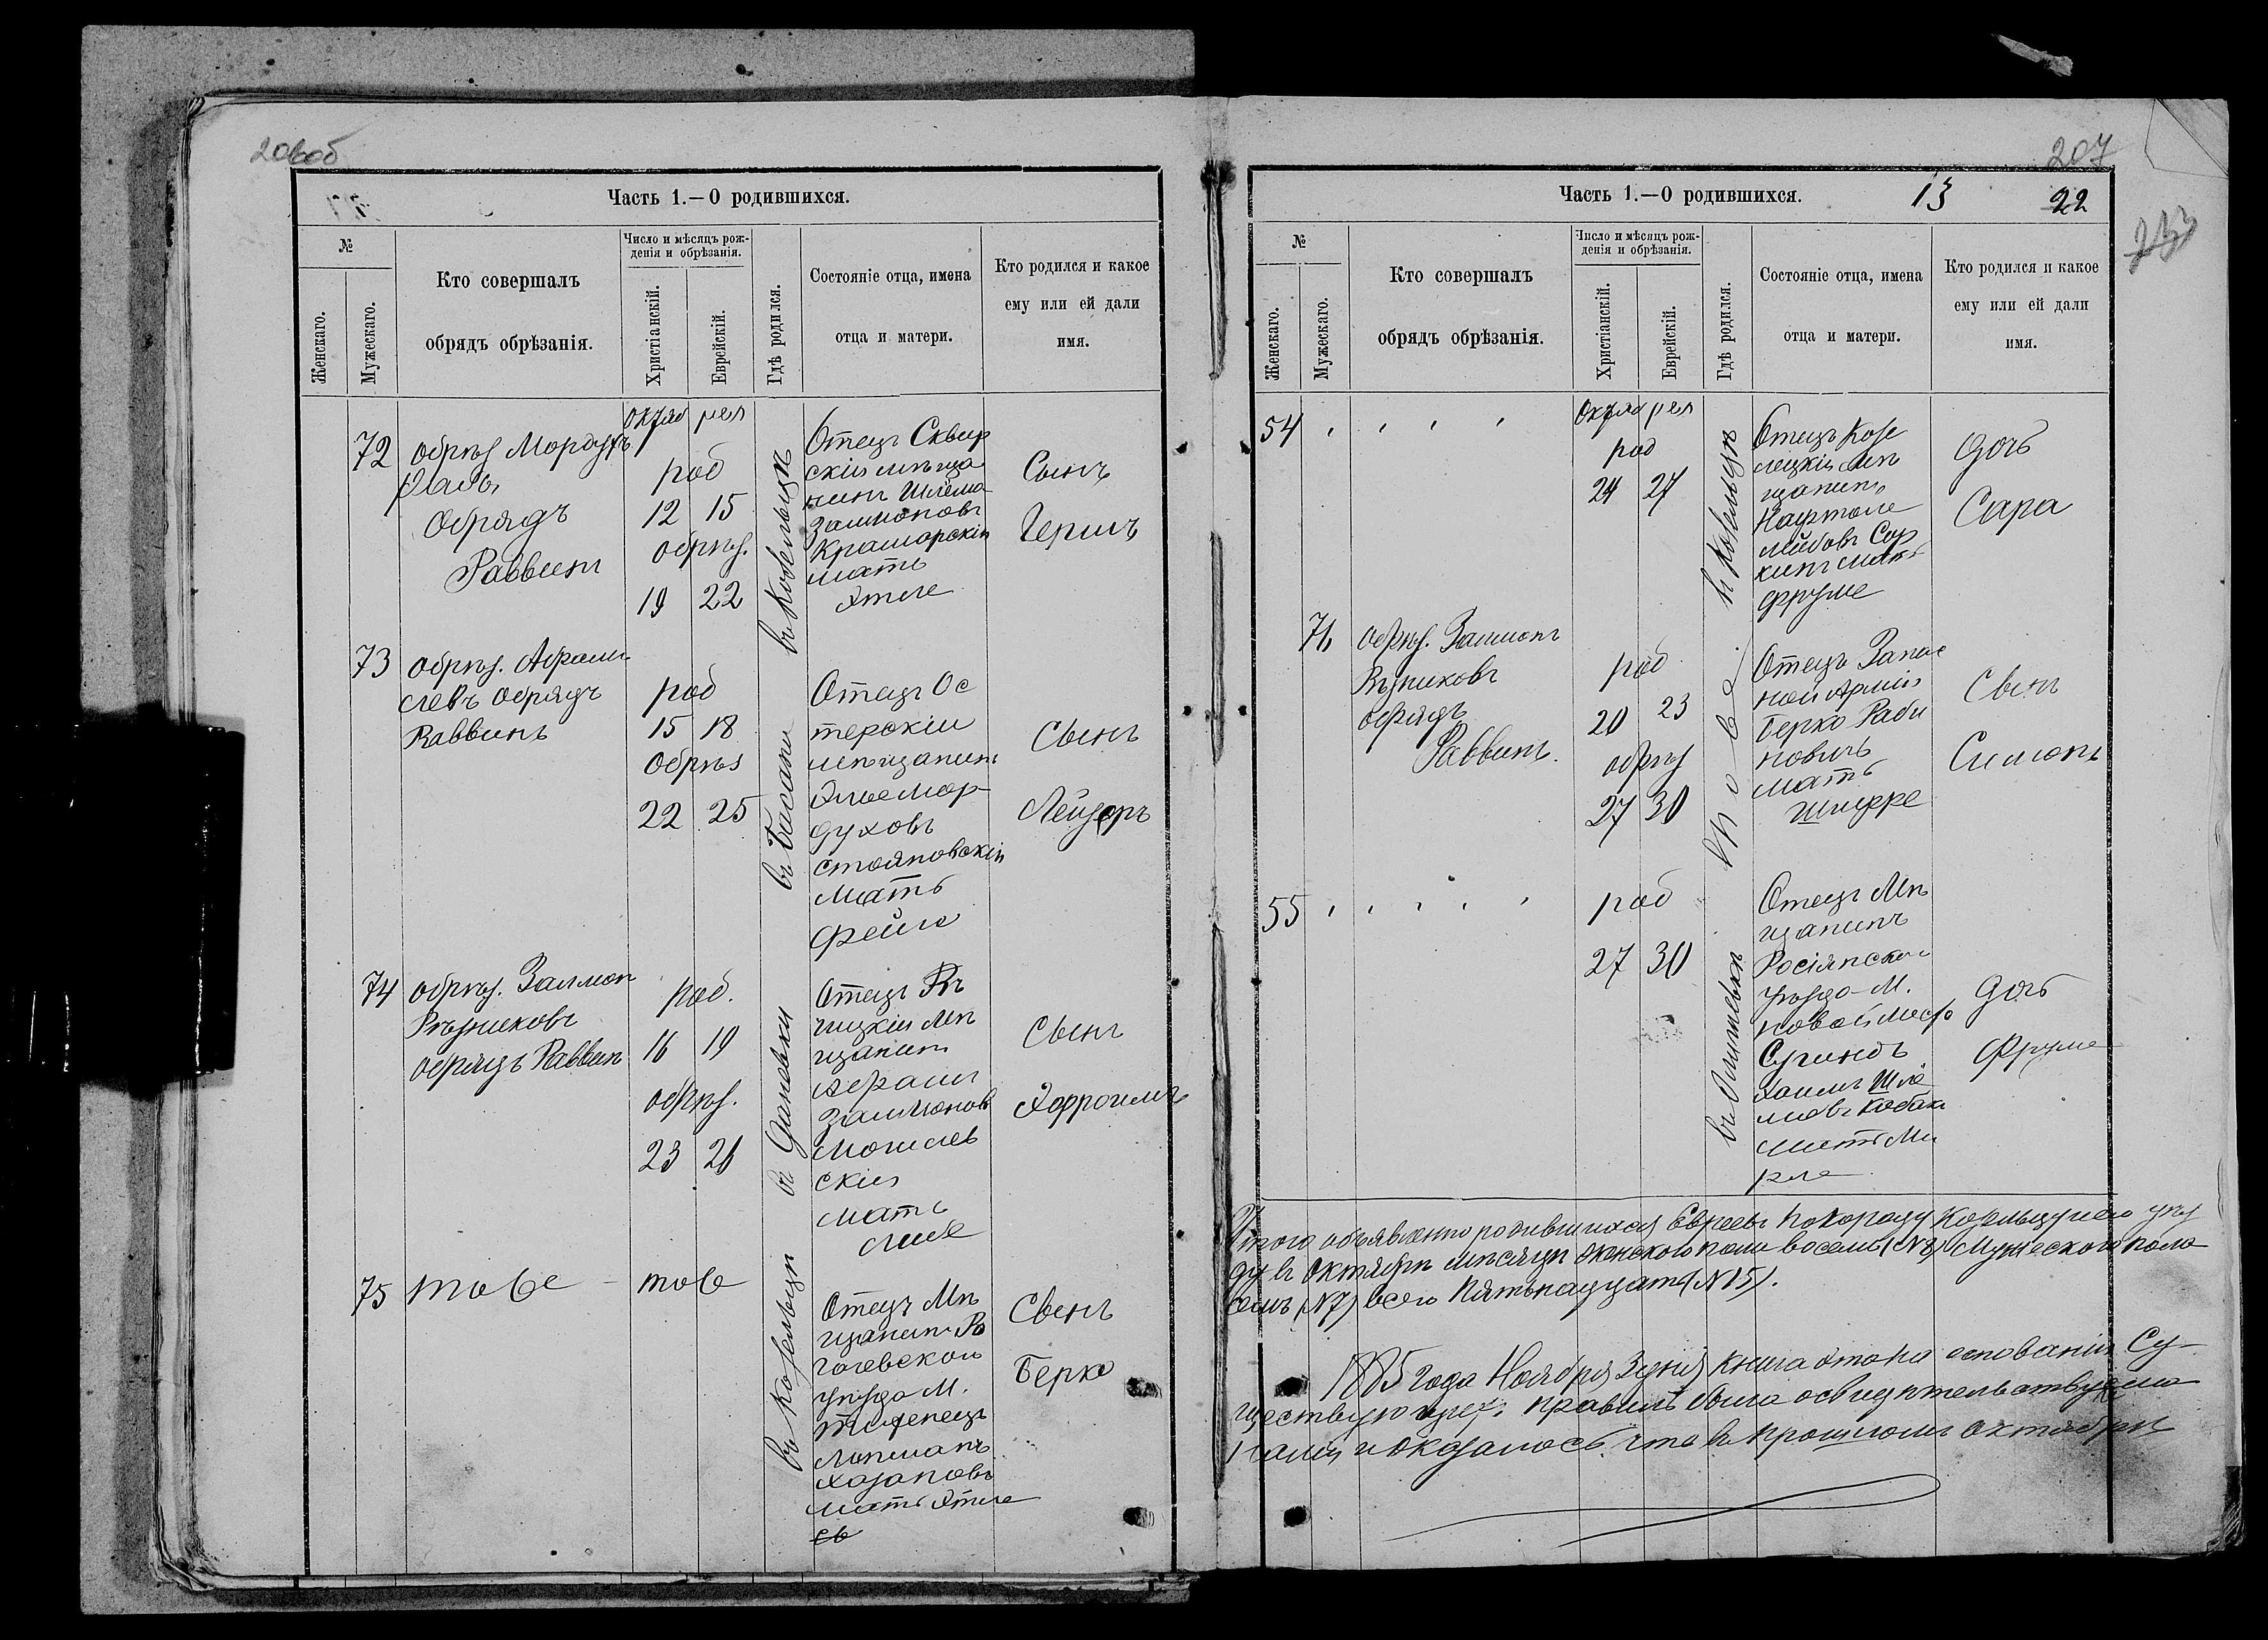 206об
Часть 1.—О родившихся.
№
Женскаго.
Мужескаго.
Кто совершалъ
обрядъ обрѣзанія.
Число и мѣсяцъ рож-
денія и обрѣзанія.
Христіанскій.
Еврейскій.
Гдѣ родился.
Состояніе отца, имена
отца и матери.
Кто родился и какое
ему или ей дали
имя.
Октяб рея
72
обрѣз Мордухъ
обрядъ
Раввинъ
род
12 15
обрѣз.
19 22
въ Козельцѣ
Отецъ Сквир
скій мѣща
нинъ Шлёма
Залмоновъ
Крамарскій
мать
Этле
Сынъ
Гершъ
73
обрѣз. Абрамъ
обрядъ
Раввинъ
род
15 18
обрѣз
22 25
Отецъ Ос
терскій
мѣщанинъ
Мор-
духовъ
Стояновскій
мать
Фейга
Сынъ
Лейзеръ
74
обрѣз. Залмон
Рѣзниковъ
обрядъ Раввин
род.
16 19
обрѣз.
23 26
въ Даневки
Отецъ Рѣ
чицкій мѣ
щанинъ
Абрамъ
Залмонов
Могилев
скій
мать
Сынъ
Эфроимъ
75
тове
тове
въ Козельцѣ
Отецъ мѣ
щанинъ Ро
гачевскаго
уѣзда м.
Тихенецъ
Липманъ
Хазановъ
мать Этле
Сынъ
Берко
207
Часть 1.—О родившихся.
13
22
№
Женскаго.
Мужескаго.
Кто совершалъ
обрядъ обрѣзанія.
Число и мѣсяцъ рож-
денія и обрѣзанія.
Христіанскій.
Еврейскій.
Гдѣ родился.
Состояніе отца, имена
отца и матери.
Кто родился и какое
ему или ей дали
имя.
Октяб рея
54
род
24 27
въ Козельцѣ
Отецъ Козе
лецкій мѣ
щанинъ
Нафтоле
Лейбовъ Сор
кинъ мать
Фруме
дочь
Сара
76
обрѣз. Залмонъ
Рѣзниковъ
обрядъ
Раввинъ.
род
20 23
обрѣз
27 30
тове
Отецъ Запас
ной Арміи
Берко Раби
новичъ
мать
Шифре
Сынъ
Симонъ
55
род
27 30
Отецъ мѣ
щанинъ
Росіянскаго
уѣзда м.
Новойместо
Сугиндъ
Хаимъ Шлё
мовъ Кобак
мать Ми
рле
дочь
Фруме
Итого объявленно родившихся Евреевъ по Городу Козельцу и его уѣз
ду въ октябрѣ мѣсяцѣ женскаго пола восемь (№8) Мужескаго пола
семь (№7) всего пятьнадцать (№15).
1885 года Ноября 3 дня книга эта на основаніи Су-
ществующихъ правилъ была освидѣтельствуема
нами и оказалось что въ прошломъ октябрѣ